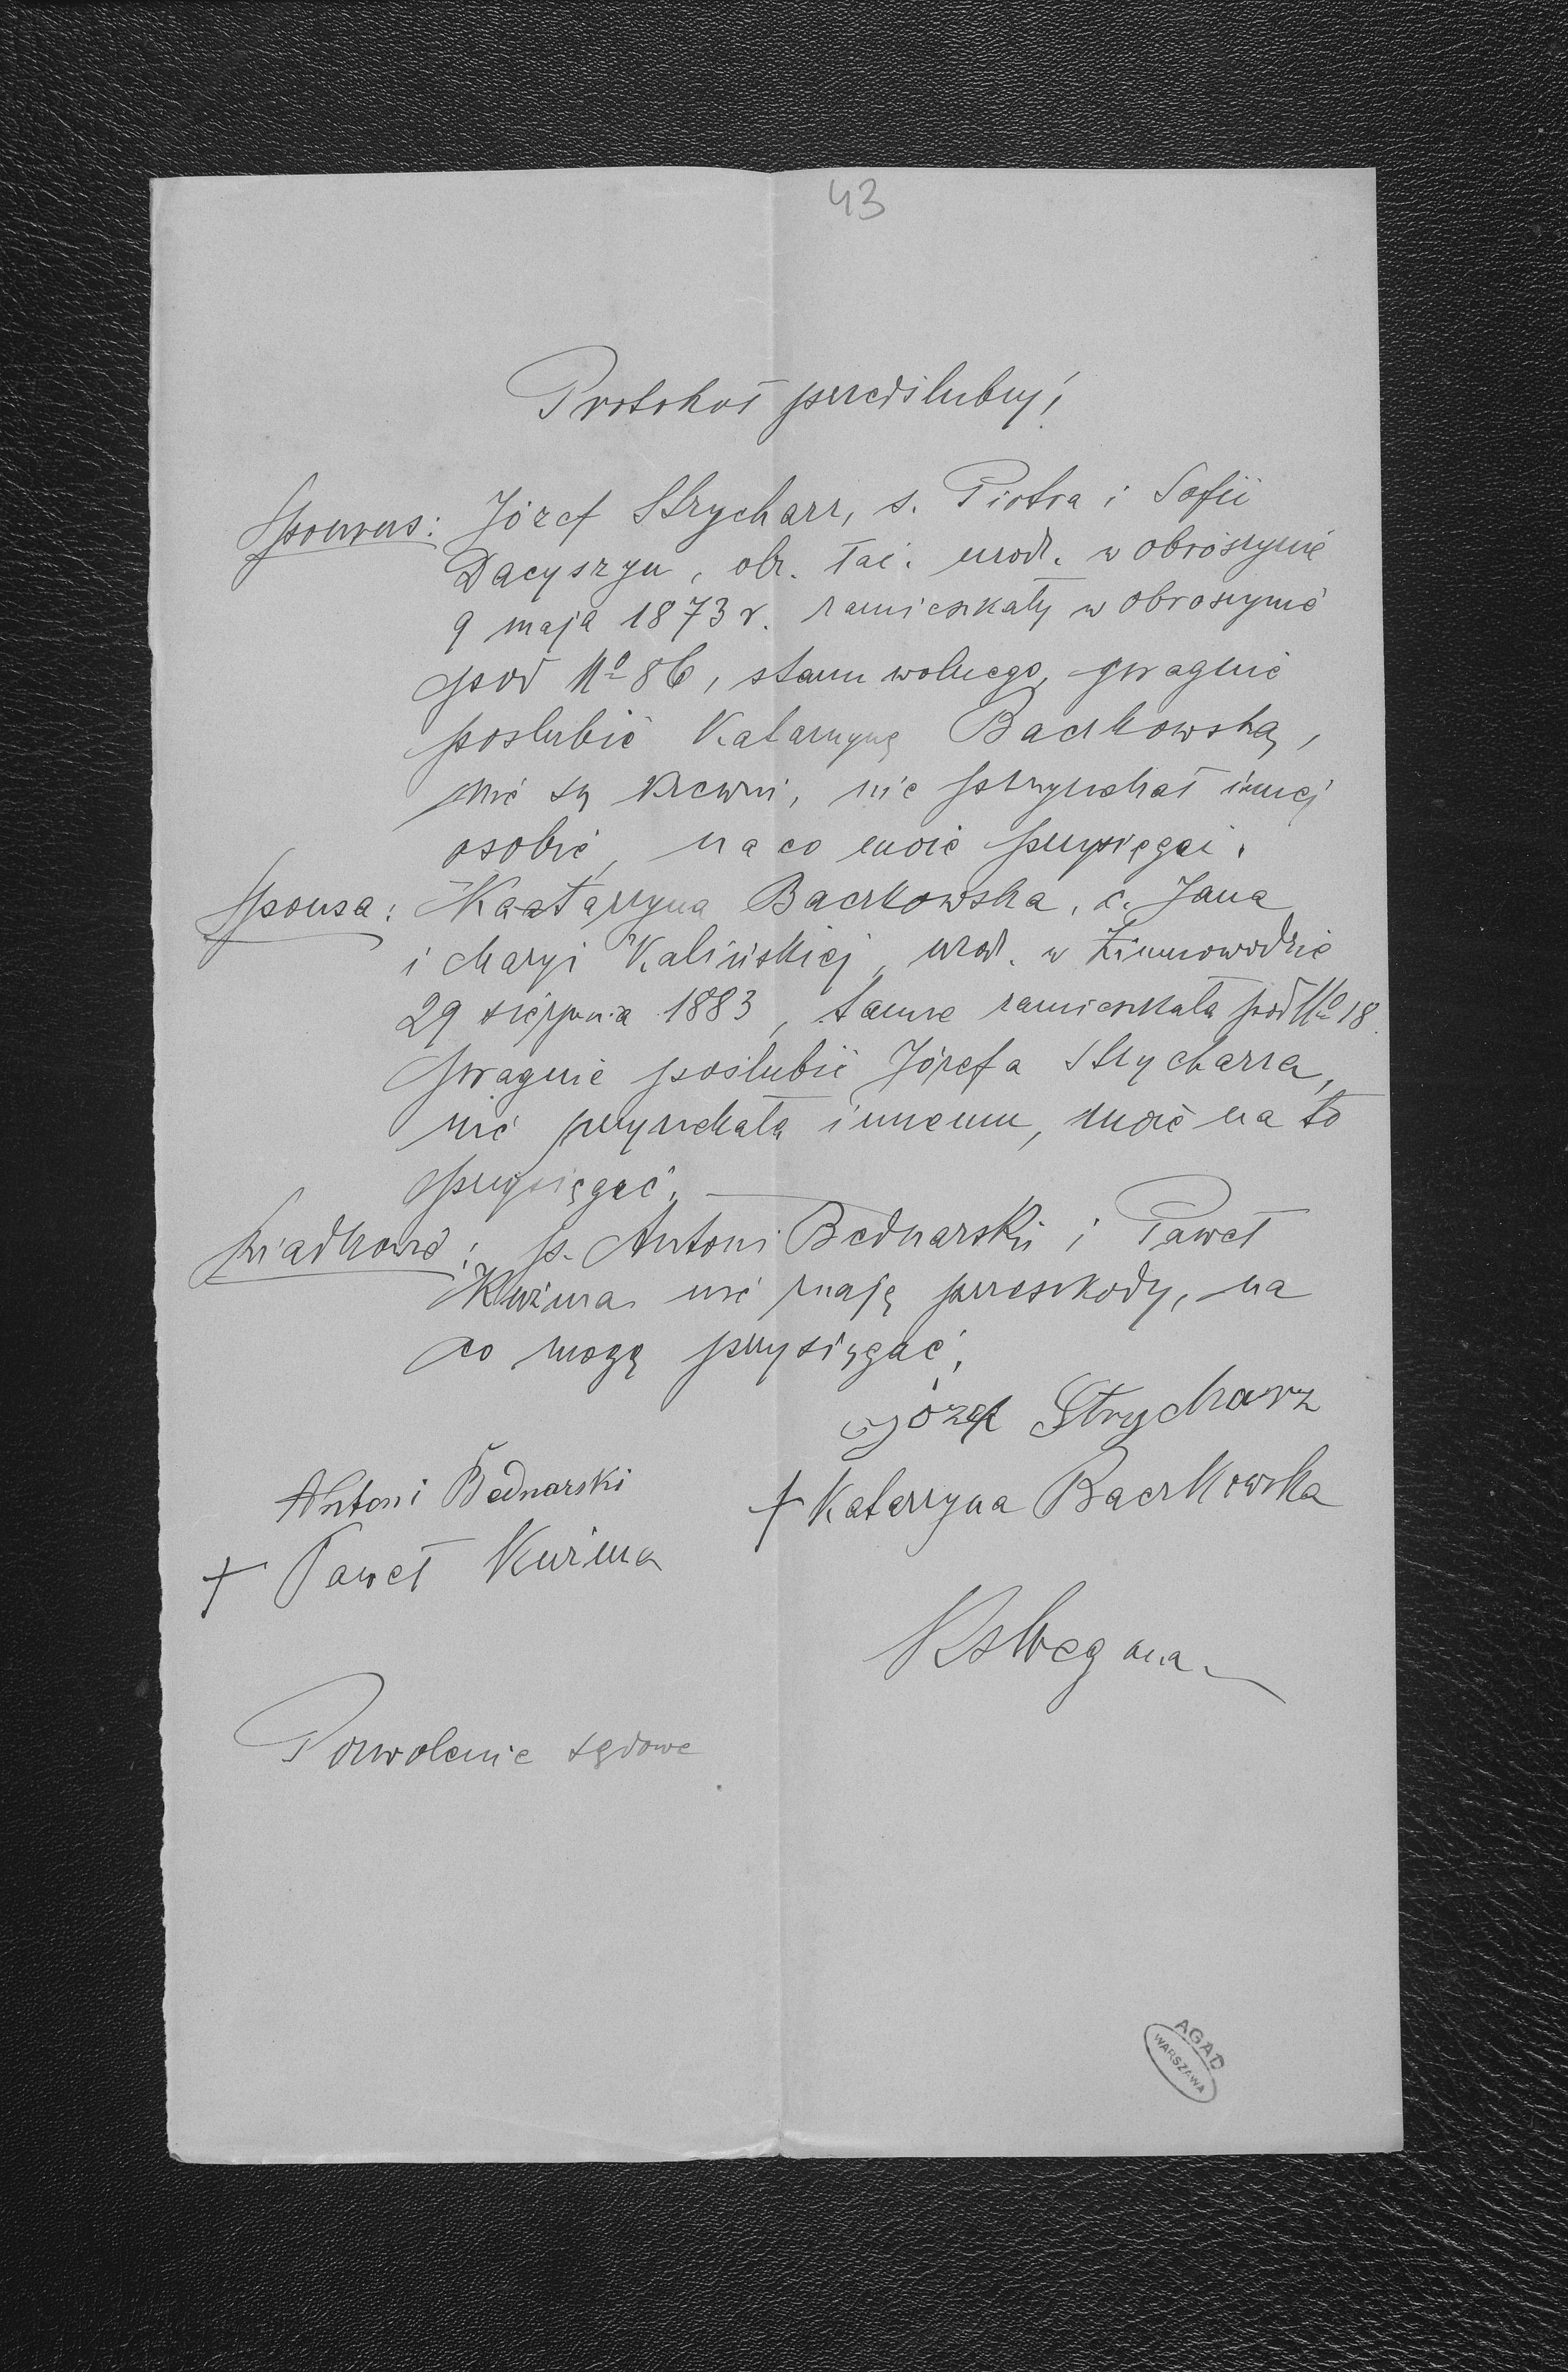 43
Protokoł przedślubny!
Sponsus: Józef Strycharz, s. Piotra i Sofii
Dacyszyn, obr. łać. urodz. w Obroszynie
9 maja 1873 r. zamieszkały w Obroszynie
pod No 86, stanu wolnego, pragnie
poslubić Katarzynę Baczkowską,
nie są krewni, nie przyrzekał innej
osobie, na co może przysięgać.
Sponsa: Kaatarzyna Baczkowska, c. Jana
i Maryi Kalińskiej, urodz. w Zimnowodzie
29 sierpnia 1883, tamże zamieszkała pod No 18.
Pragnie poslubić Józefa Strycharza,
nie przyrzekała innemu, może na to
przysięgać.
Świadkowie: p. Antoni Bednarski i Paweł
Kuźma nie znają przeszkody, na
co mogą przysięgać.
Józef Strycharz
Antoni Bednarski
+ Katarzyna Baczkowska
+ Paweł Kuźma
Pozwolenie sądowe
AGAD
WARSZAWA